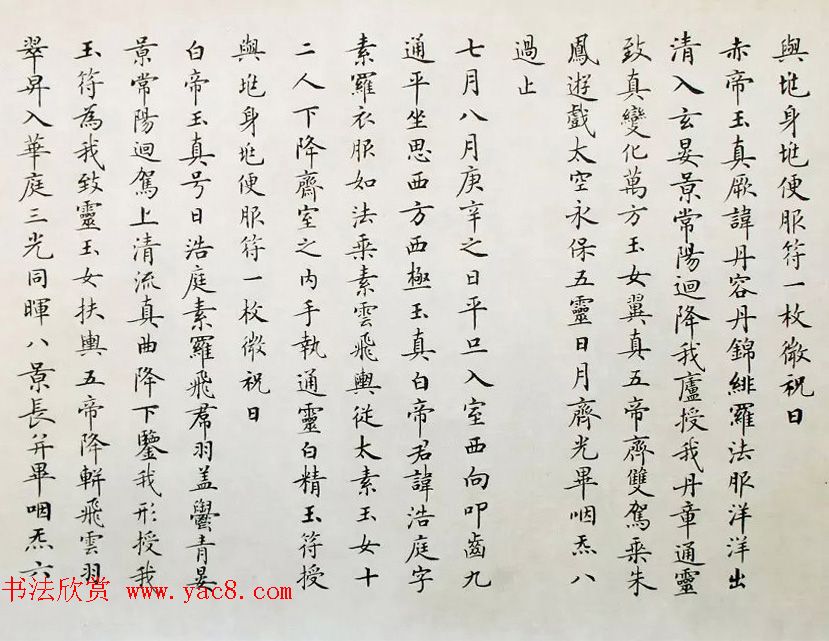 與地身地便服符一枚微祝日
赤帝玉真厥諱丹容丹錦緋羅法服洋洋出
清入玄晏景常陽迴降我廬授我丹章通靈
致真變化萬方玉女翼真五帝齊雙駕乘朱
鳳遊戲太空永保五靈日月齊光畢咽炁八
過止
七月八月庚辛之日平旦入室西向叩齒九
通平坐思西方西極玉真白帝君諱浩庭字
素羅衣服如法乘素雲飛輿從太素玉女十
二人下降齋室之內手執通靈白精玉符授
與地身地便服符一枚微祝日
白帝玉真号曰浩庭素羅飛帬羽盖鬱青晏
景常陽迴駕上清流真曲降下鑒我形授我
玉符為我致靈玉女扶輿五帝降軿飛雲羽
翠昇入華庭三光同暉八景長并畢咽炁六
书法欣赏 www.yac8.com